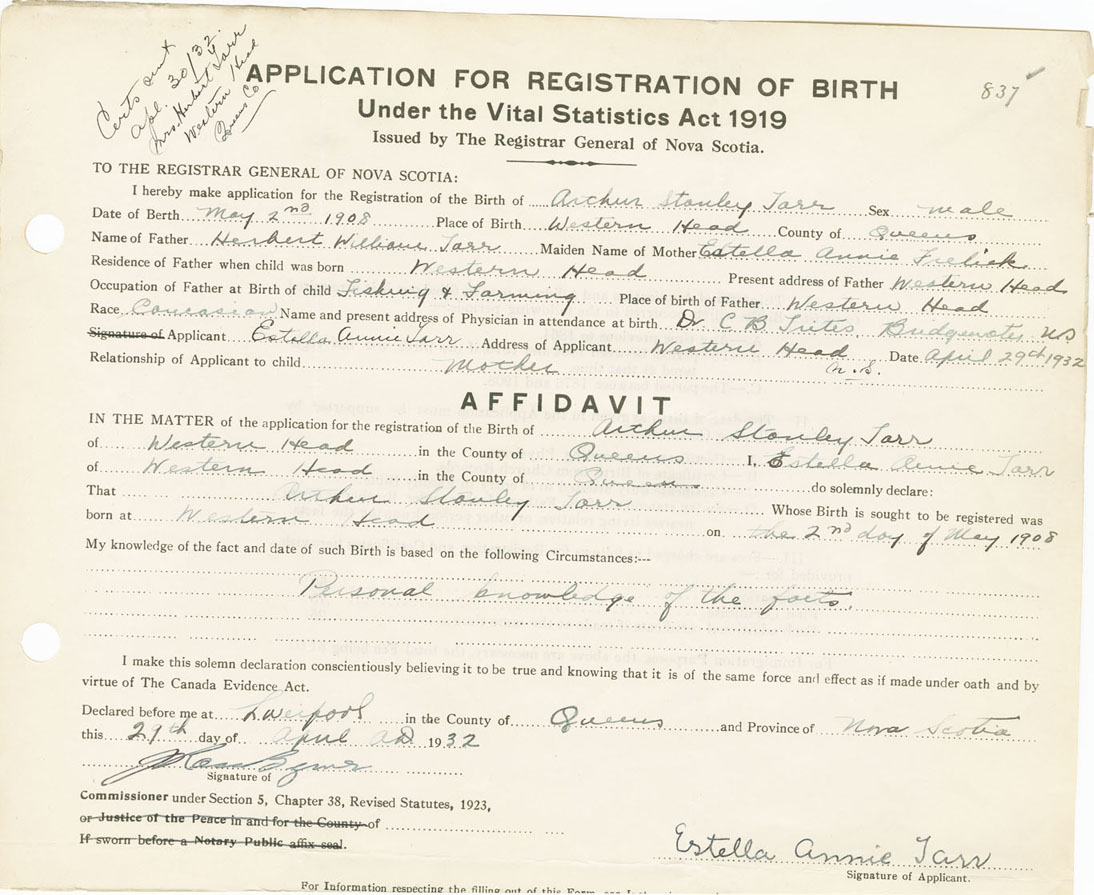 Certs sent
Apl. 30/32.
Mrs. Herbert Tarr
Western Head
Queens Co
837
APPLICATION FOR REGISTRATION OF BIRTH
Under the Vital Statistics Act 1919
Issued by The Registrar General of Nova Scotia.
TO THE REGISTRAR GENERAL OF NOVA SCOTIA:
I hereby make application for the Registration of the Birth of Arthur Stanley Tarr Sex male
Date of Berth May 2nd 1908 Place of Birth Western Head County of Queens
Name of Father Herbert William Tarr Maiden Name of Mother Estella Annie Frelick
Residence of Father when child was born Western Head Present address of Father Western Head
Occupation of Father at Birth of child Fishing & Farming Place of birth of Father Western Head
Race Caucasian Name and present address of Physician in attendance at birth Dr. C B Trites, Bridgewater NS
Signature of Applicant Estella Annie Tarr Address of Applicant Western Head N.S. Date April 29th 1932
Relationship of Applicant to child Mother
AFFIDAVIT
IN THE MATTER of the application for the registration of the Birth of Arthur Stanley Tarr
of Western Head in the County of Queens I, Estella Annie Tarr
of Western Head in the County of Queens do solemnly declare:
That Arthur Stanley Tarr Whose Birth is sought to be registered was
born at Western Head on the 2nd day of May 1908
My knowledge of the fact and date of such Birth is based on the following Circumstances:---
Personal knowledge of the facts.
I make this solemn declaration conscientiously believing it to be true and knowing that it is of the same force and effect as if made under oath and by
virtue of The Canada Evidence Act.
Declared before me at Liverpool in the County of Queens and Province of Nova Scotia
this 29th day of April AD 1932
Signature of
Commissioner under Section 5, Chapter 38, Revised Statutes, 1923,
or Justice of the Peace in and for the County of
If sworn before a Notary Public affix seal.
Estella Annie Tarr
Signature of Applicant.
For Information respecting the filling out of this Form